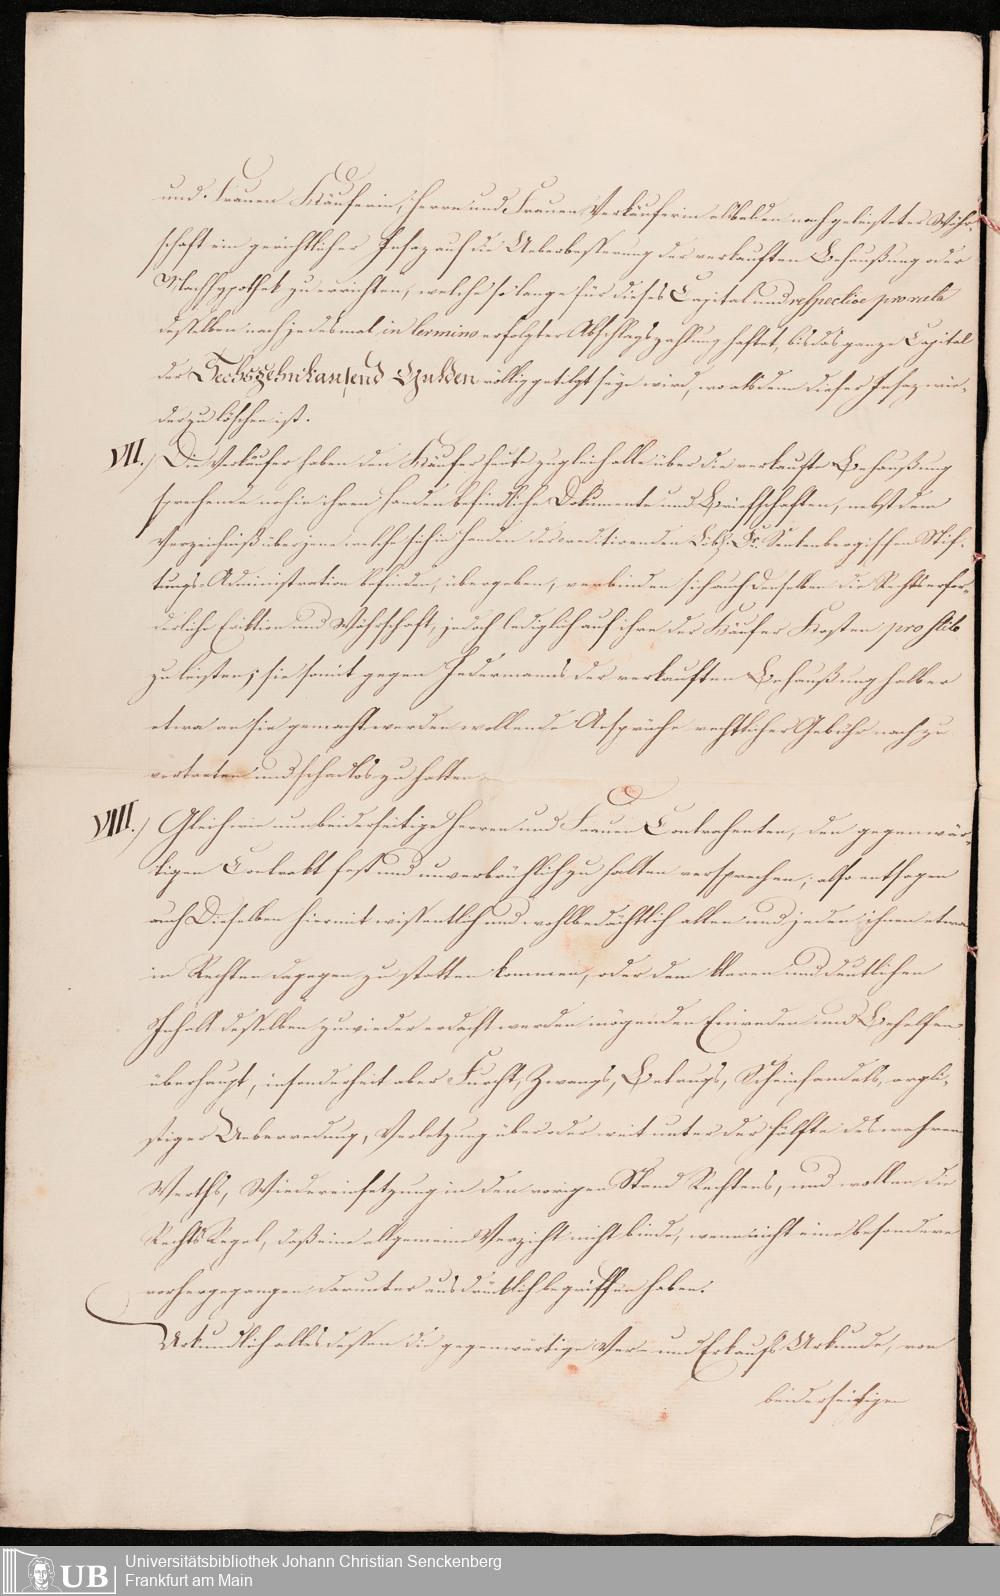 und Frauen Käuferin, Herrn und Frauen Verkäuferin alsbalden nach geleisteter Währ-
schaft ein gerichtlicher Insaz auf die Ueberbesserung der verkauften Behaußung oder
Nachhypothek zu errichten, welche so lange für dieses Capital und respective pro rata
desselben nach jedesmal in termino erfolgter Abschlagszahlung haftet, bis das ganze Capital
der Sechszehntausend Gulden völlig getilgt seyn wird, wo alsdann dieser Insaz wie-
der zu löschen ist.
VII.) Die Verkäufer haben den Käufer heute zugleich alle über die verkaufte Behaußung
sprechende noch in ihren Handen befindliche Dokumente und Briefschaften, nebst dem
Verzeichniß über jene welche sich in Handen der creditirenden Dr. Senkenbergischen Stif-
tungs-Administration befinden, übergeben, verbinden sich auch denselben die Rechtserfor-
derliche Eviktion und Währschaft, jedoch lediglich auf ihre der Käufer Kosten pro stilo
zu leisten; sie somit gegen Jedermanns der verkauften Behaußung halber
etwa an sie gemacht werden wollende Ansprüche rechtlicher Gebühr nach zu
vertreten und schadlos zu halten.
VIII.) Gleichwie nun beiderseitige Herren und Frauen Contrahenten, den gegenwär-
tigen Contrakt fest und unverbrüchlich zu halten versprechen; also entsagen
auch Dieselben hiermit wissentlich und wohlbedächtlich allen und jeden ihnen etwa
in Rechten dagegen zu statten kommen, oder dem klaren und deutlichen
Inhalt desselben zuwieder erdacht werden mögenden Einreden und Behelfen
überhaupt, insonderheit aber Furcht, Zwangs, Betrugs, Scheinhandels, argli-
stiger Ueberredung, Verletzung über oder weit unter der Hälfte des wahren
Werths, Wiedereinsetzung in den vorigen Stand Rechtens, und wollen die
Rechts Regel, daß eine allgemeine Verzicht nicht binde, wenn nicht eine besondere
vorhergegangen darunter ausdrücklich begriffen haben.
Urkundlich alles dessen die gegenwärtige Ver- und Erkaufs Urkunde, von
beiderseitigen
UB Universitätsbibliothek Johann Christian Senckenberg
Frankfurt am Main